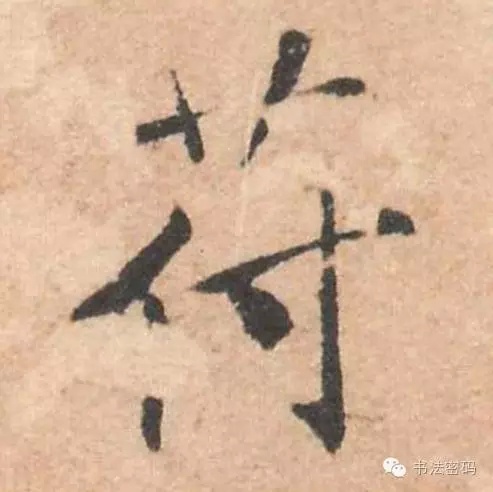 苻
书法密码